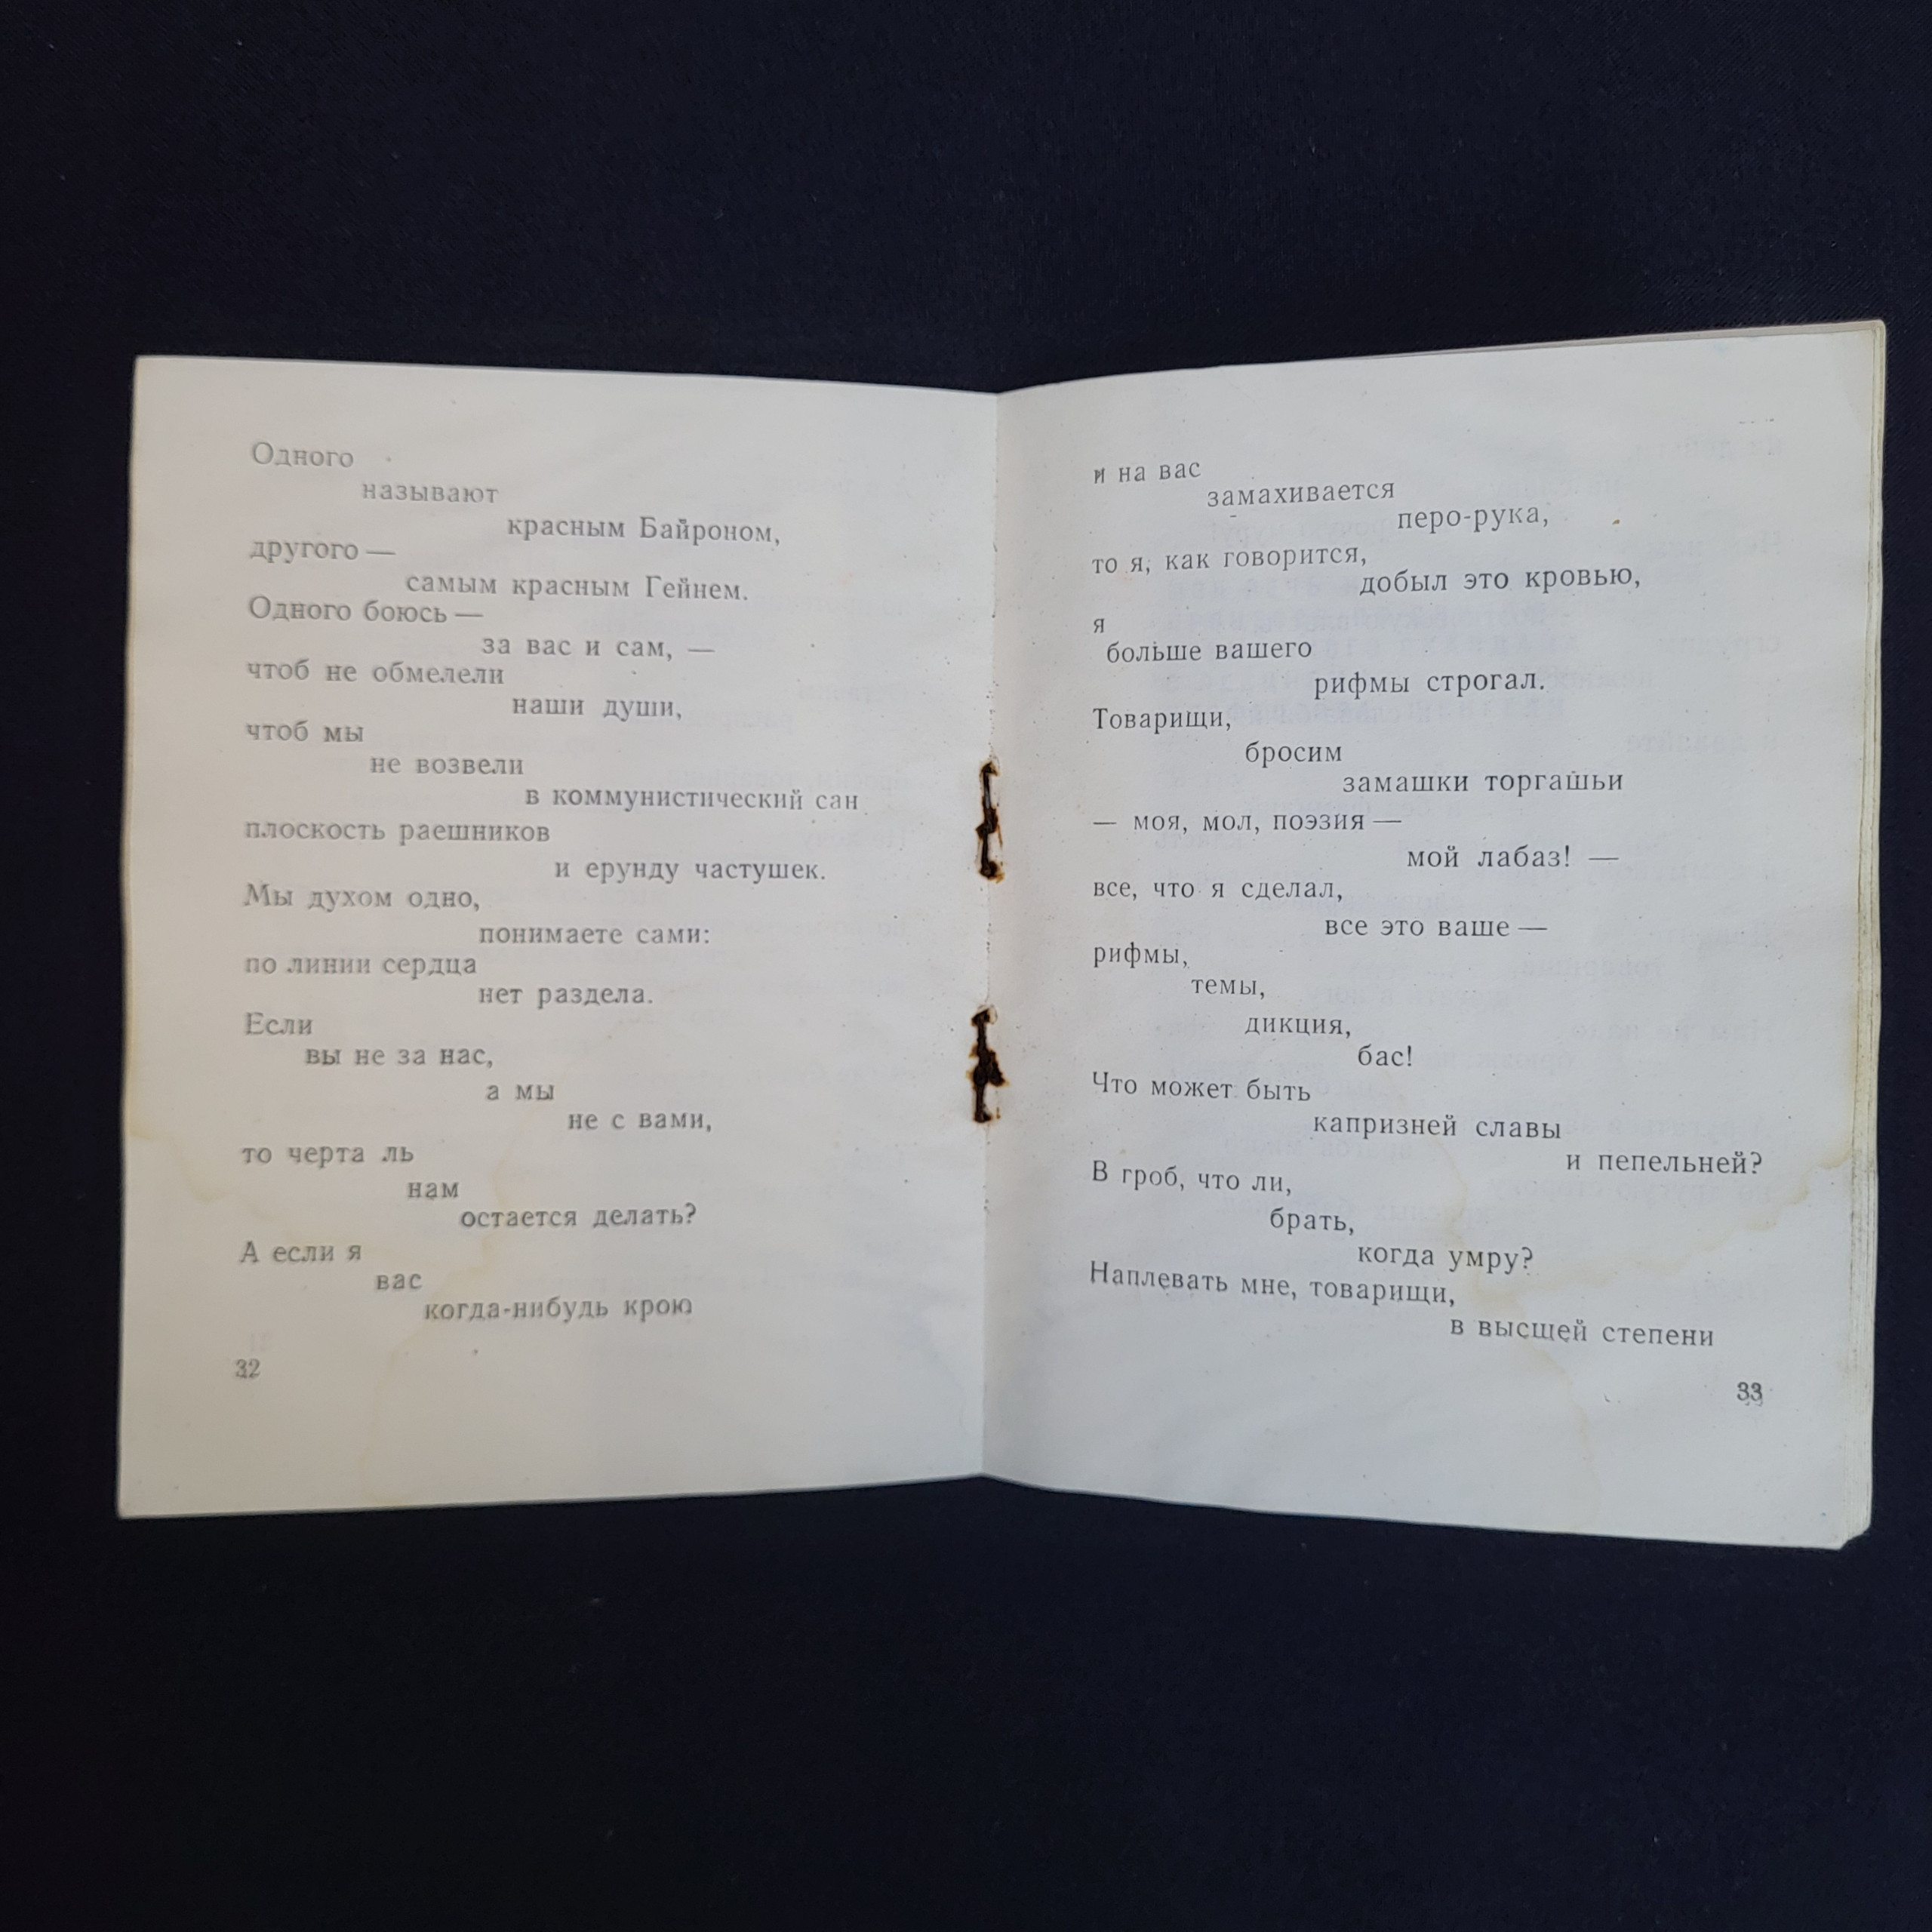 Одного
называют
красным Байроном,
другого —
самым красным Гейнем.
Одного боюсь —
за вас и сам, —
чтоб не обмелели
наши души,
чтоб мы
не возвели
в коммунистический сан
плоскость раешников
и ерунду частушек.
Мы духом одно,
понимаете сами:
по линии сердца
нет раздела.
Если
вы не за нас,
а мы
не с вами,
то черта ль
нам
остается делать?
А если я
вас
когда-нибудь крою
32
и на вас
замахивается
перо-рука,
то я, как говорится,
добыл это кровью,
я
больше вашего
рифмы строгал.
Товарищи,
бросим
замашки торгашьи
— моя, мол, поэзия —
мой лабаз! —
все, что я сделал,
все это ваше —
рифмы,
темы,
дикция,
бас!
Что может быть
капризней славы
и пепельней?
В гроб, что ли,
брать,
когда умру?
Наплевать мне, товарищи,
в высшей степени
33